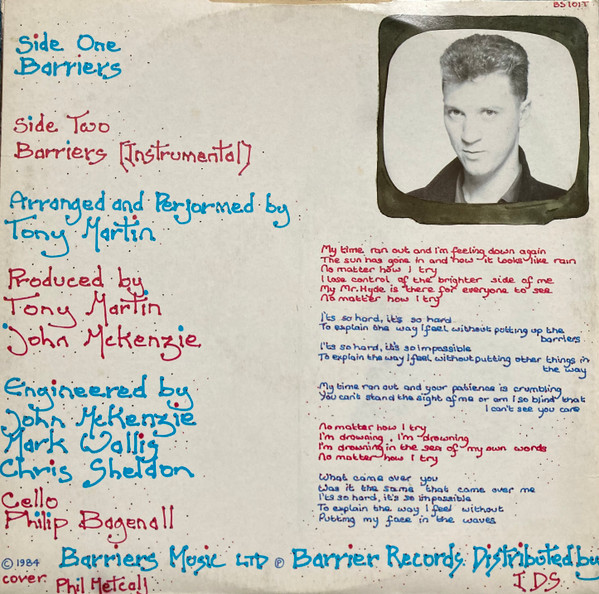 BS101T
Side One
Barriers
Side Two
Barriers [Instrumental]
Arranged and Performed by
Tony Martin
Produced by
Tony Martin
John McKenzie
Engineered by
John McKenzie
Mark Wallis
Chris Sheldon
Cello
Philip Bagenall
My time ran out and i'm feeling down again
The sun has gone in and now it looks like rain
No matter how I try
I lose control of the brighter side of me
My Mr. Hyde is there for everyone to see
No matter how I try
It's so hard, it's so hard
To explain the way I feel without putting up the
barriers
It's so hard, it's so impossible
To explain the way I feel without putting other things in
the way
My time ran out and your patience is crumbling
You can't stand the sight of me or am I so blind that
I can't see you care
No matter how I try
I'm drowning, I'm drowning
I'm drowning in the sea of my own words
No matter how I try
What came over you
Was it the same that came over me
It's so hard, it's so impossible
To explain the way I feel without
Putting my face in the waves
© 1984 Barriers Music LTD ℗ Barrier Records. Distributed by
I.D.S
cover Phil Metcalf